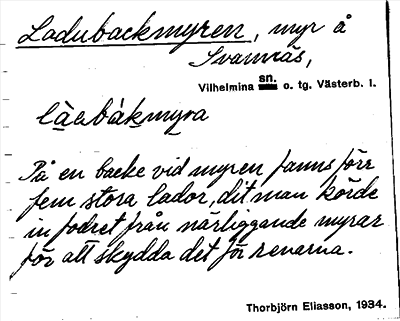 Ladubackmyren, myr å
Svannäs,
Vilhelmina sn. o. tg. Västerb. l.
làabákmyra
På en backe vid myren fanns förr
fem stora lador, dit man körde
in fodret från närliggande myrar
för att skydda det för renarna.
Thorbjörn Eliasson, 1934.